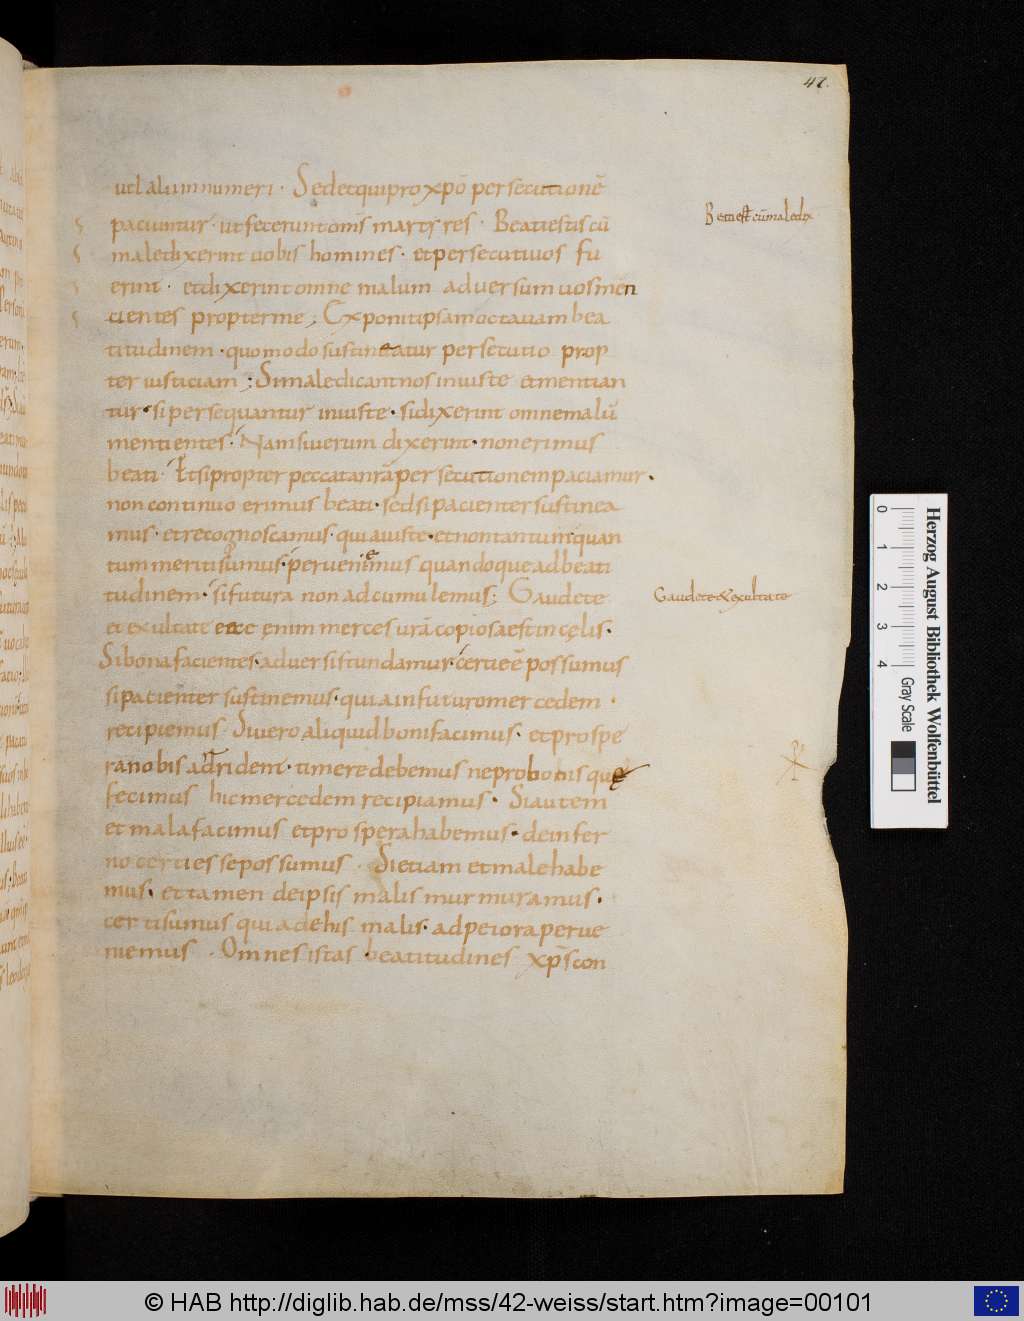 47.
uel alii innumeri · Sed et qui pro xpō persecutionē
paciuntur · ut fecerunt om̄s martyres · Beati estis cū
maledixerint uobis homines · et persecuti uos fu
erint · et dixerint omne malum aduersum uos men
cientes propter me ; Exponit ipsam octauam bea
titudinem · quomodo sustineatur persecutio prop
ter iusticiam ; Si maledicant nos iniuste et mentian
tur · si persequantur iniuste · si dixerint omne malū
mentientes · Nam si uerum dixerint · non erimus
beati · Et si propter peccata nr̄a persecutionem paciamur ·
non continuo erimus beati · sed si pacienter sustinea
mus · et recognoscamus · quia iuste · et non tantum quan
tum meriti sumus · perueniemus quandoque ad beati
tudinem · si futura non adcumulemus ; Gaudete
et exultate ecce enim merces urā copiosa est in cęlis ·
Si bona facientes · aduersis tundamur · certi eē possumus
si pacienter sustinemus · quia in futuro mercedem ·
recipiemus · Si uero aliquid boni facimus · et prospe
ra nobis adrident · timere debemus ne pro bonis quę
fecimus hic mercedem recipiamus · Si autem
et mala facimus et prospera habemus · de infer
no certi esse possumus · Si etiam et male habe
mus · et tamen de ipsis malis murmuramus ·
certi sumus quia de his malis · ad peiora perue
niemus · Omnes istas beatitudines xp̄s con
Beati est cū maledix
Gaudete & exultate
0 1 2 3 4
Gray Scale
Herzog August Bibliothek Wolfenbüttel
© HAB http://diglib.hab.de/mss/42-weiss/start.htm?image=00101